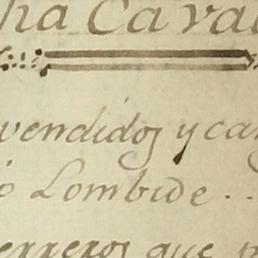 ha Caval
vendidos y car
o Lombide . .
erreros que